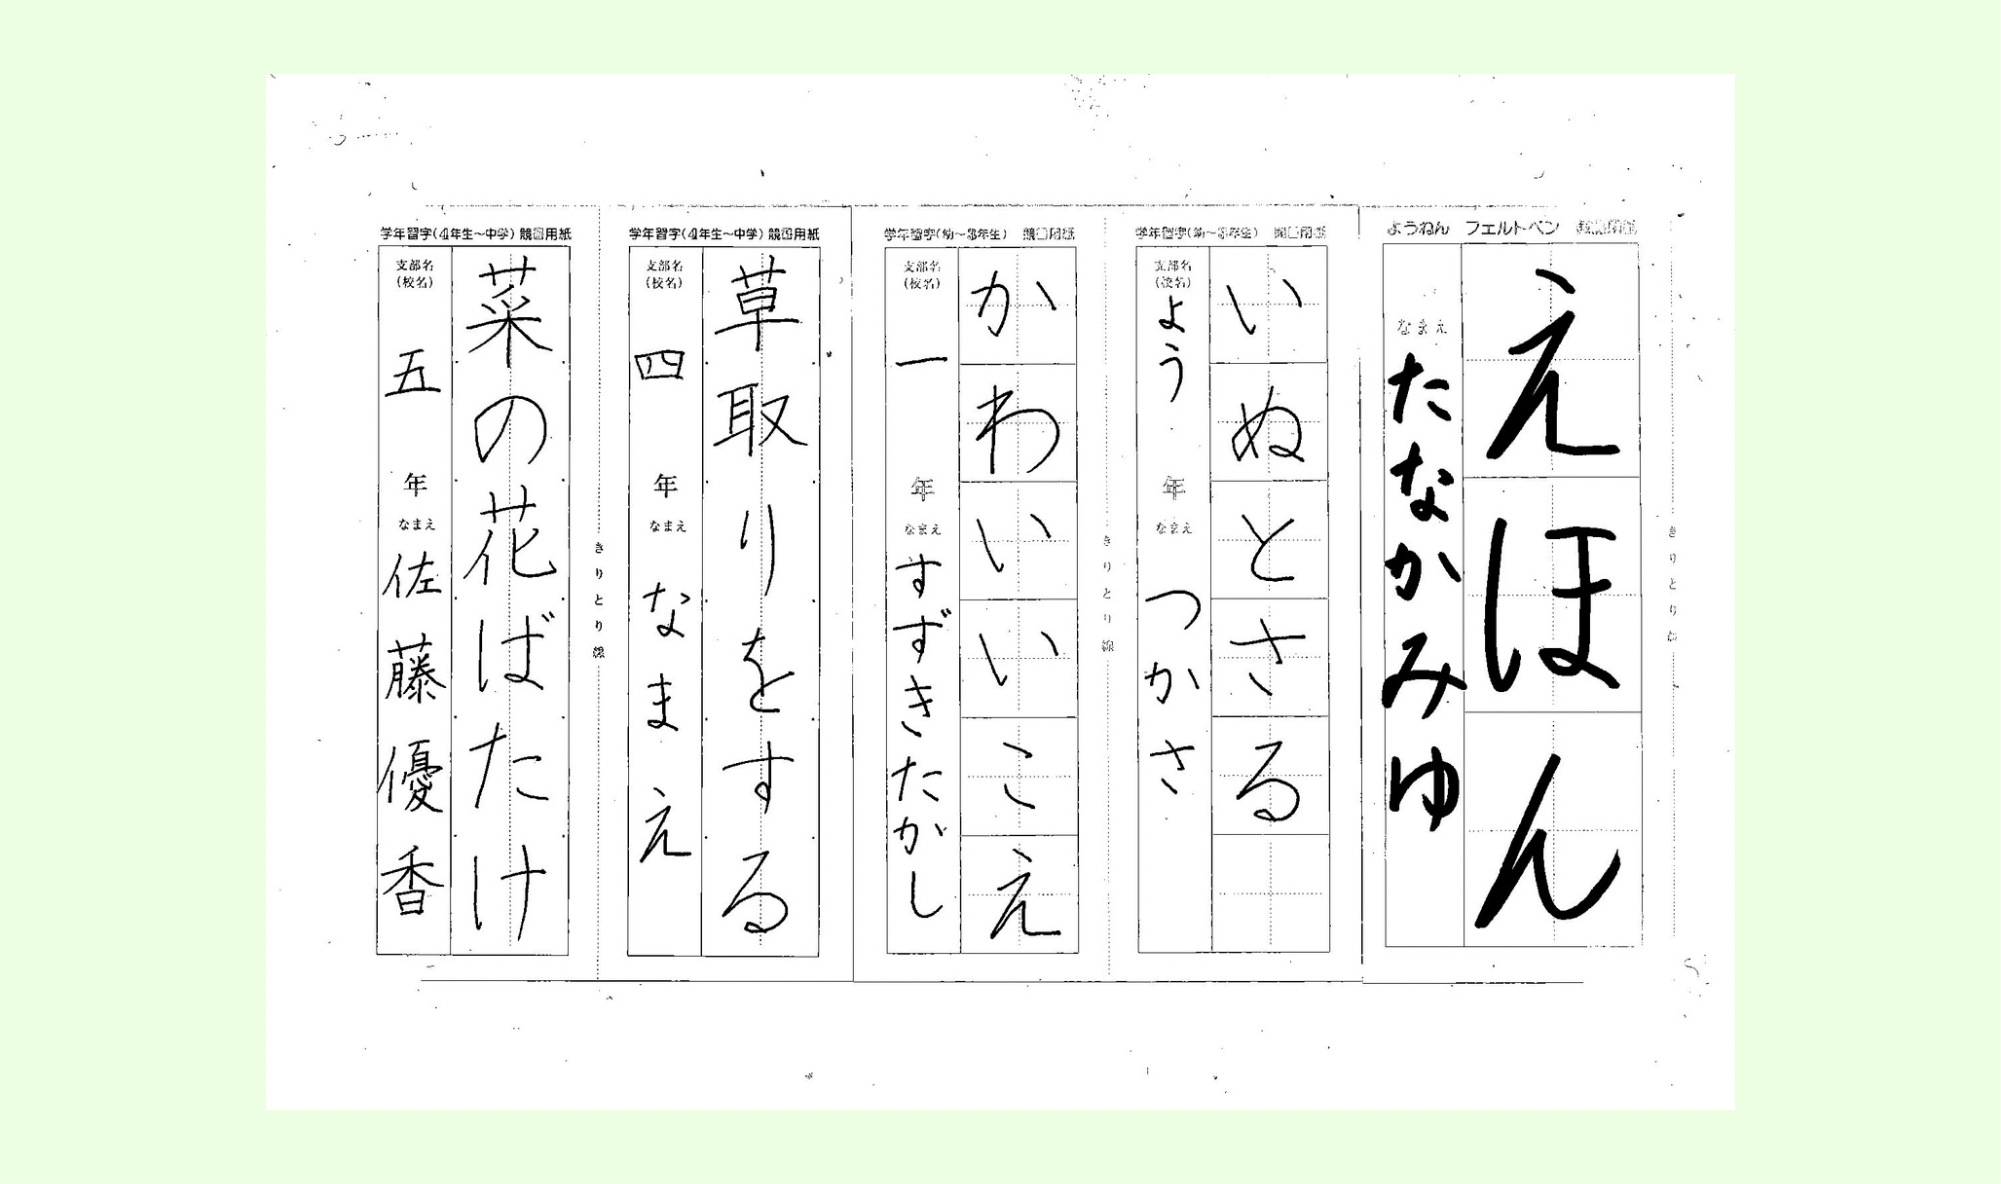 ようねん フェルトペン
えほん
なまえ
たなかみゆ
きりとり線
学年習字(幼〜3年生)
いぬとさる
支部名
(校名)
よう
年
なまえ
つかさ
きりとり線
学年習字(幼〜3年生)
かわいいこえ
支部名
(校名)
一
年
なまえ
すずきたかし
学年習字(4年生〜中学)
草取りをする
支部名
(校名)
四
年
なまえ
なまえ
きりとり線
学年習字(4年生〜中学)
菜の花ばたけ
支部名
(校名)
五
年
なまえ
佐藤優香